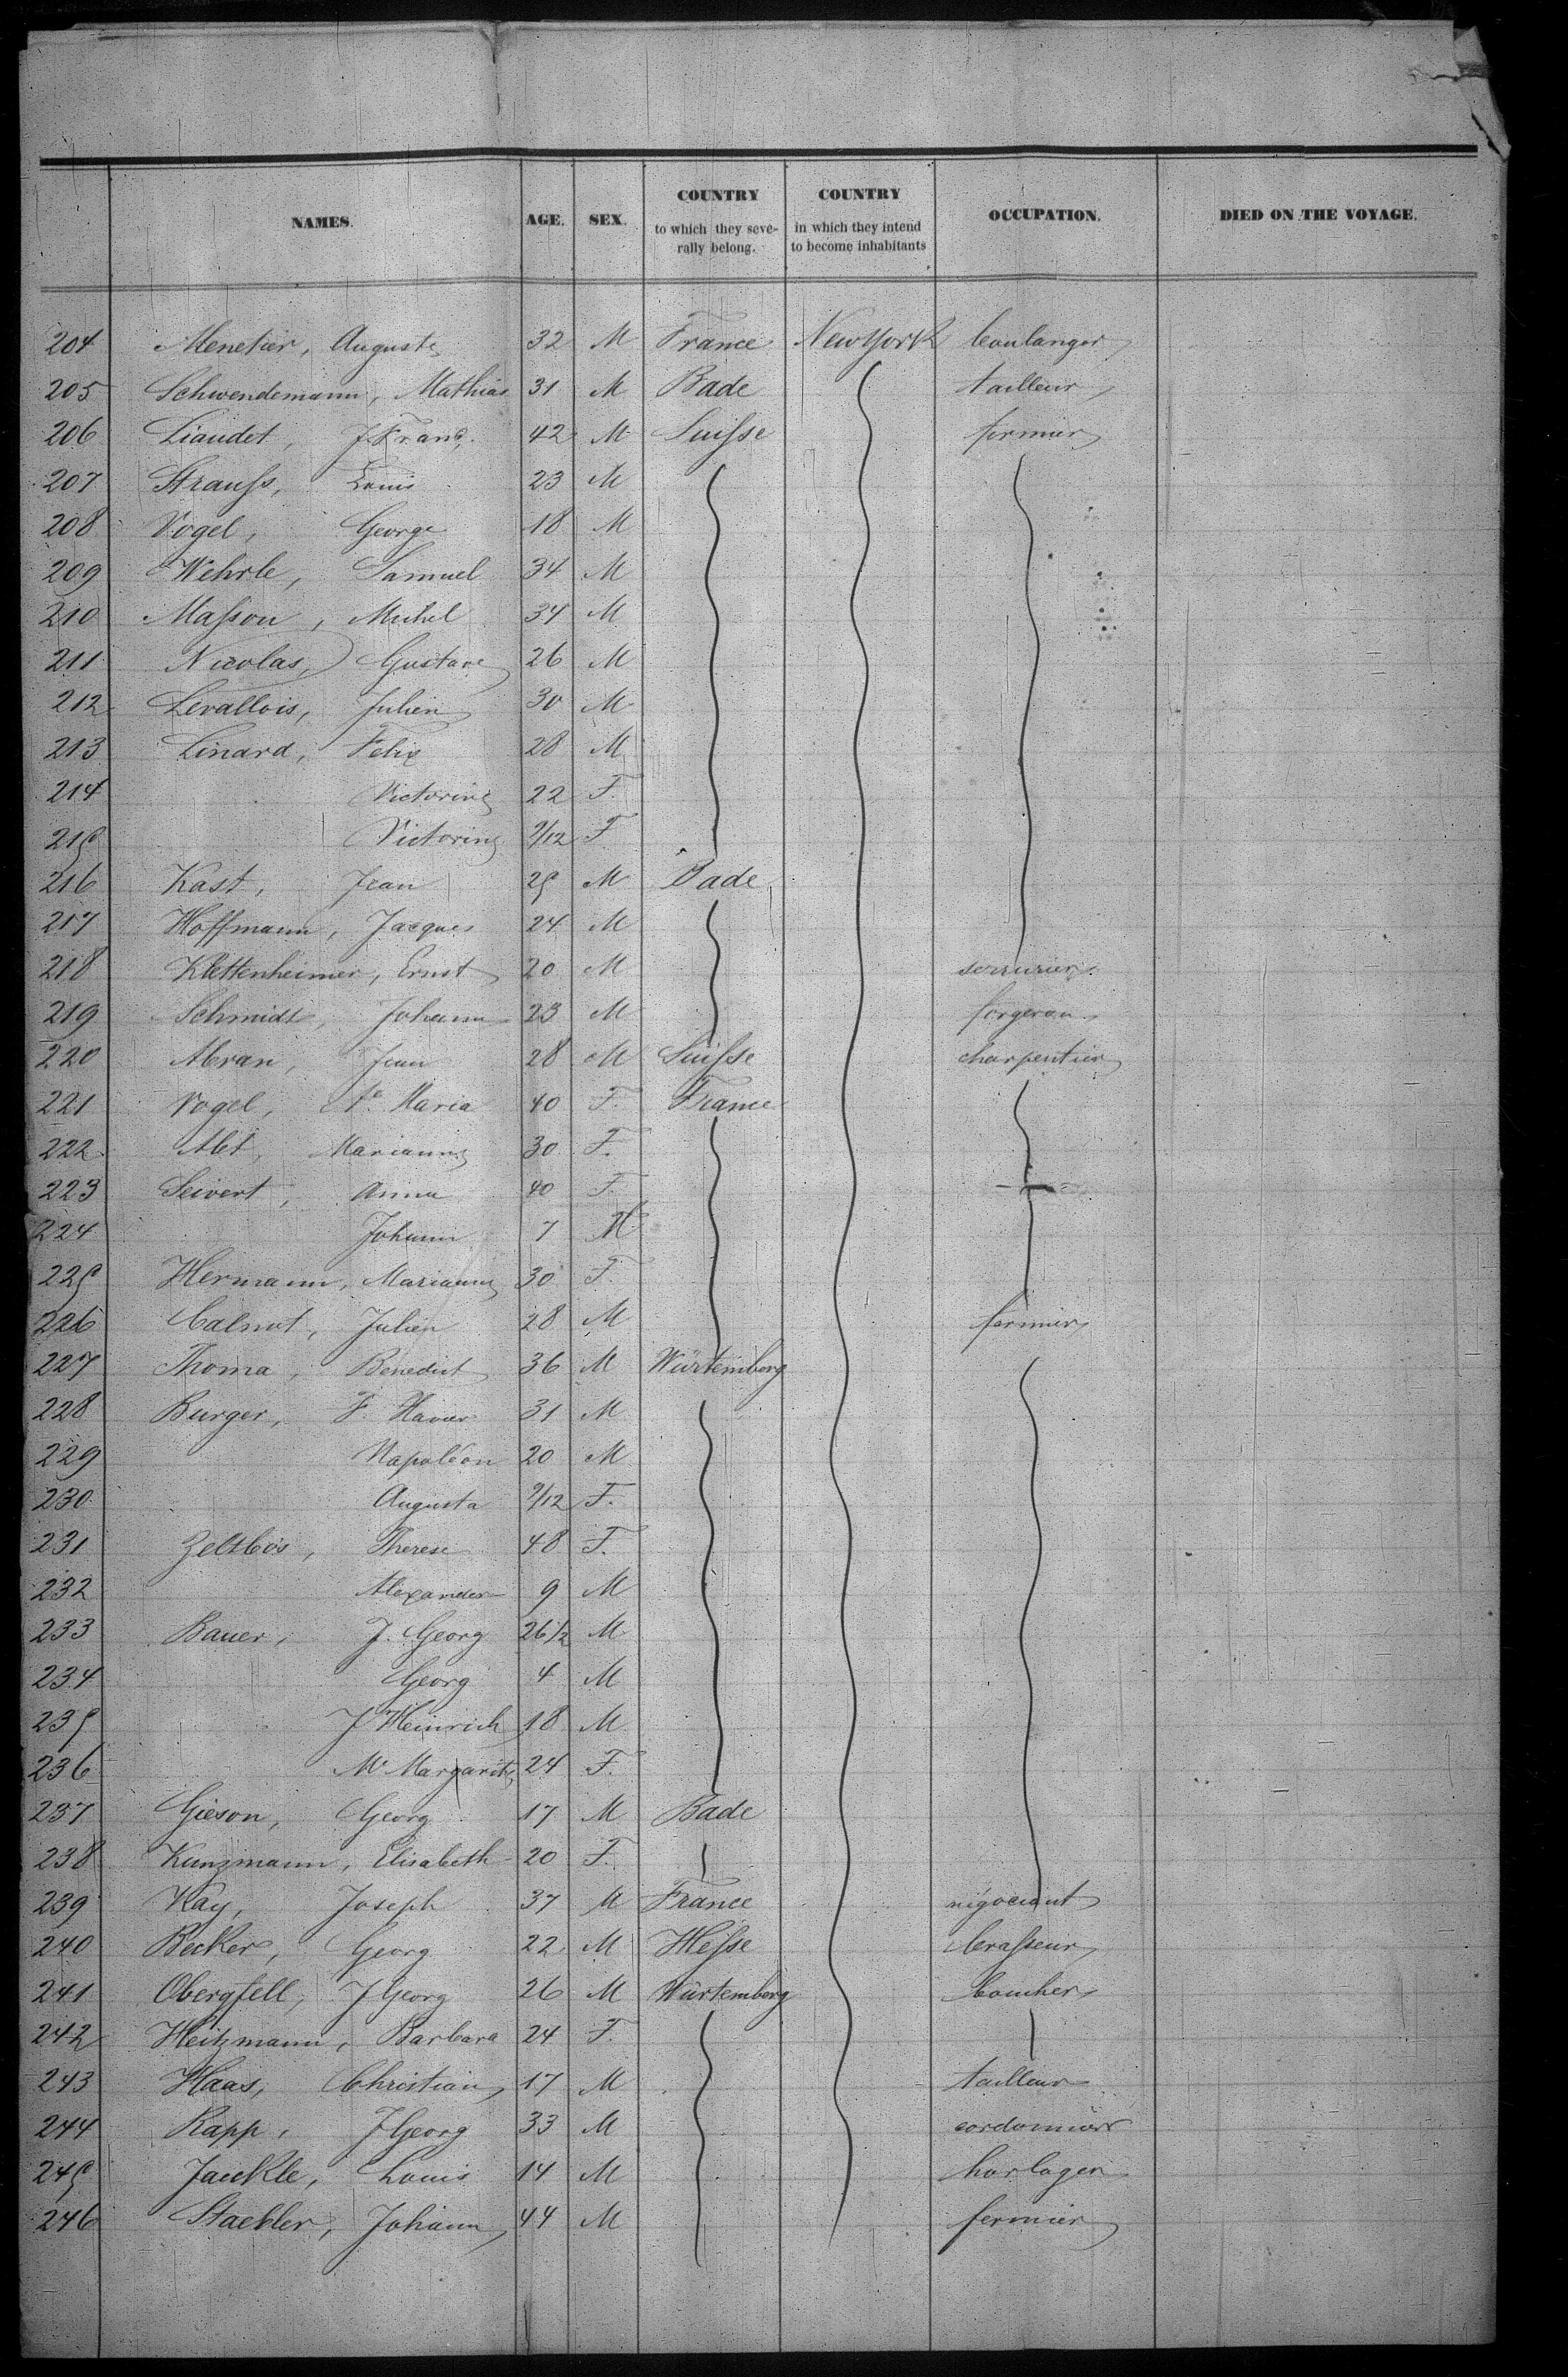 NAMES. AGE. SEX. COUNTRY to which they seve- rally belong. COUNTRY in which they intend to become inhabitants OCCUPATION. DIED ON THE VOYAGE.
204 Menetier, Auguste 32 M France New York boulanger
205 Schwendemann, Mathias 31 M Bade tailleur
206 Liaudet, J Franc. 42 M Suisse fermier
207 Strauss, Louis 23 M
208 Vogel, George 18 M
209 Wehrle, Samuel 34 M
210 Masson, Michel 34 M
211 Nicolas, Gustave 26 M
212 Levallois, Julien 30 M
213 Linard, Felix 28 M
214 Victorine 22 F.
215 Victorine 9/12 F
216 Kast, Jean 25 M Bade
217 Hoffmann, Jacques 24 M
218 Klettenheimer, Ernst 20 M serrurier
219 Schmidt, Johann 23 M forgeron
220 Abran, Jean 28 M Suisse charpentier
221 Vogel, Maria 40 F. France
222 Marianne 30 F.
223 Seivert, Anna 40 F.
224 Johann 7 M
225 Hermann, Marianne 30 F.
226 Calmot, Julien 28 M fermier
227 Thoma, Benedict 36 M Würtemberg
228 Burger, F. Xavier 31 M
229 Napoléon 20 M
230 Augusta 9/12 F.
231 Therese 48 F.
232 Alexander 9 M
233 Bauer, J. Georg 26 1/2 M
234 Georg 4 M
235 J Heinrich 18 M
236 M Margarite 24 F.
237 Gieson, Georg 17 M Bade
238 Kunzmann, Elisabeth 20 F.
239 Kay, Joseph 37 M France négociant
240 Becker, Georg 22 M Hesse brasseur
241 Obergfell, J Georg 26 M Würtemberg boucher
242 Heitzmann, Barbara 24 F.
243 Haas, Christian 17 M tailleur
244 Rapp, J Georg 33 M cordonnier
245 Jaeckle, Louis 14 M horloger
246 Staebler, Johann 44 M fermier